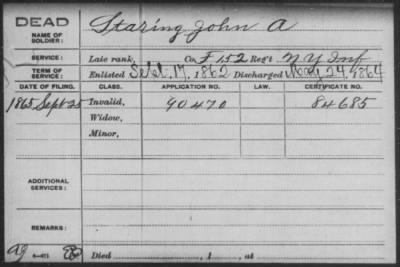 DEAD
NAME OF SOLDIER: Staring, John A
SERVICE: Late rank, Co. F 152 Reg't N Y Inf
TERM OF SERVICE: Enlisted Sept. 17, 1862 Discharged May 24, 1864
DATE OF FILING. CLASS. APPLICATION NO. LAW. CERTIFICATE NO.
1865 Sept 25 Invalid, 90470 84685
Widow,
Minor,
ADDITIONAL SERVICES:
REMARKS:
Died , 1 , at